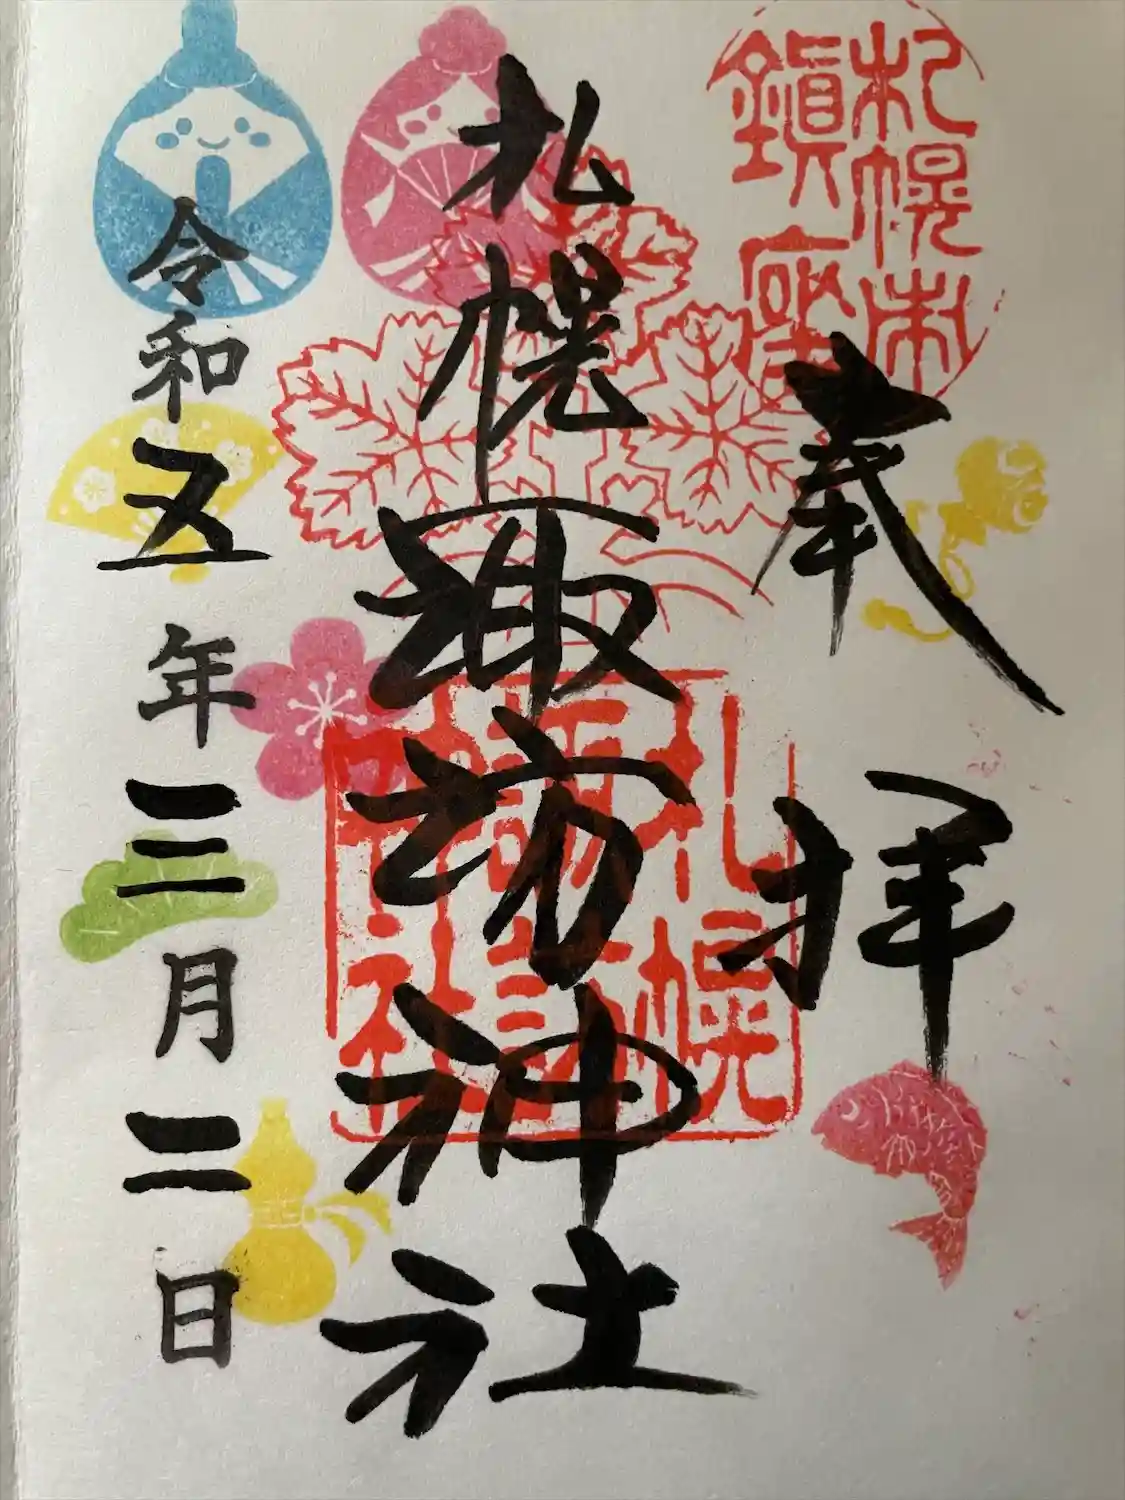 奉拝
札幌市
鎮座
札幌諏訪神社
札幌
諏訪
神社
令和五年三月二日